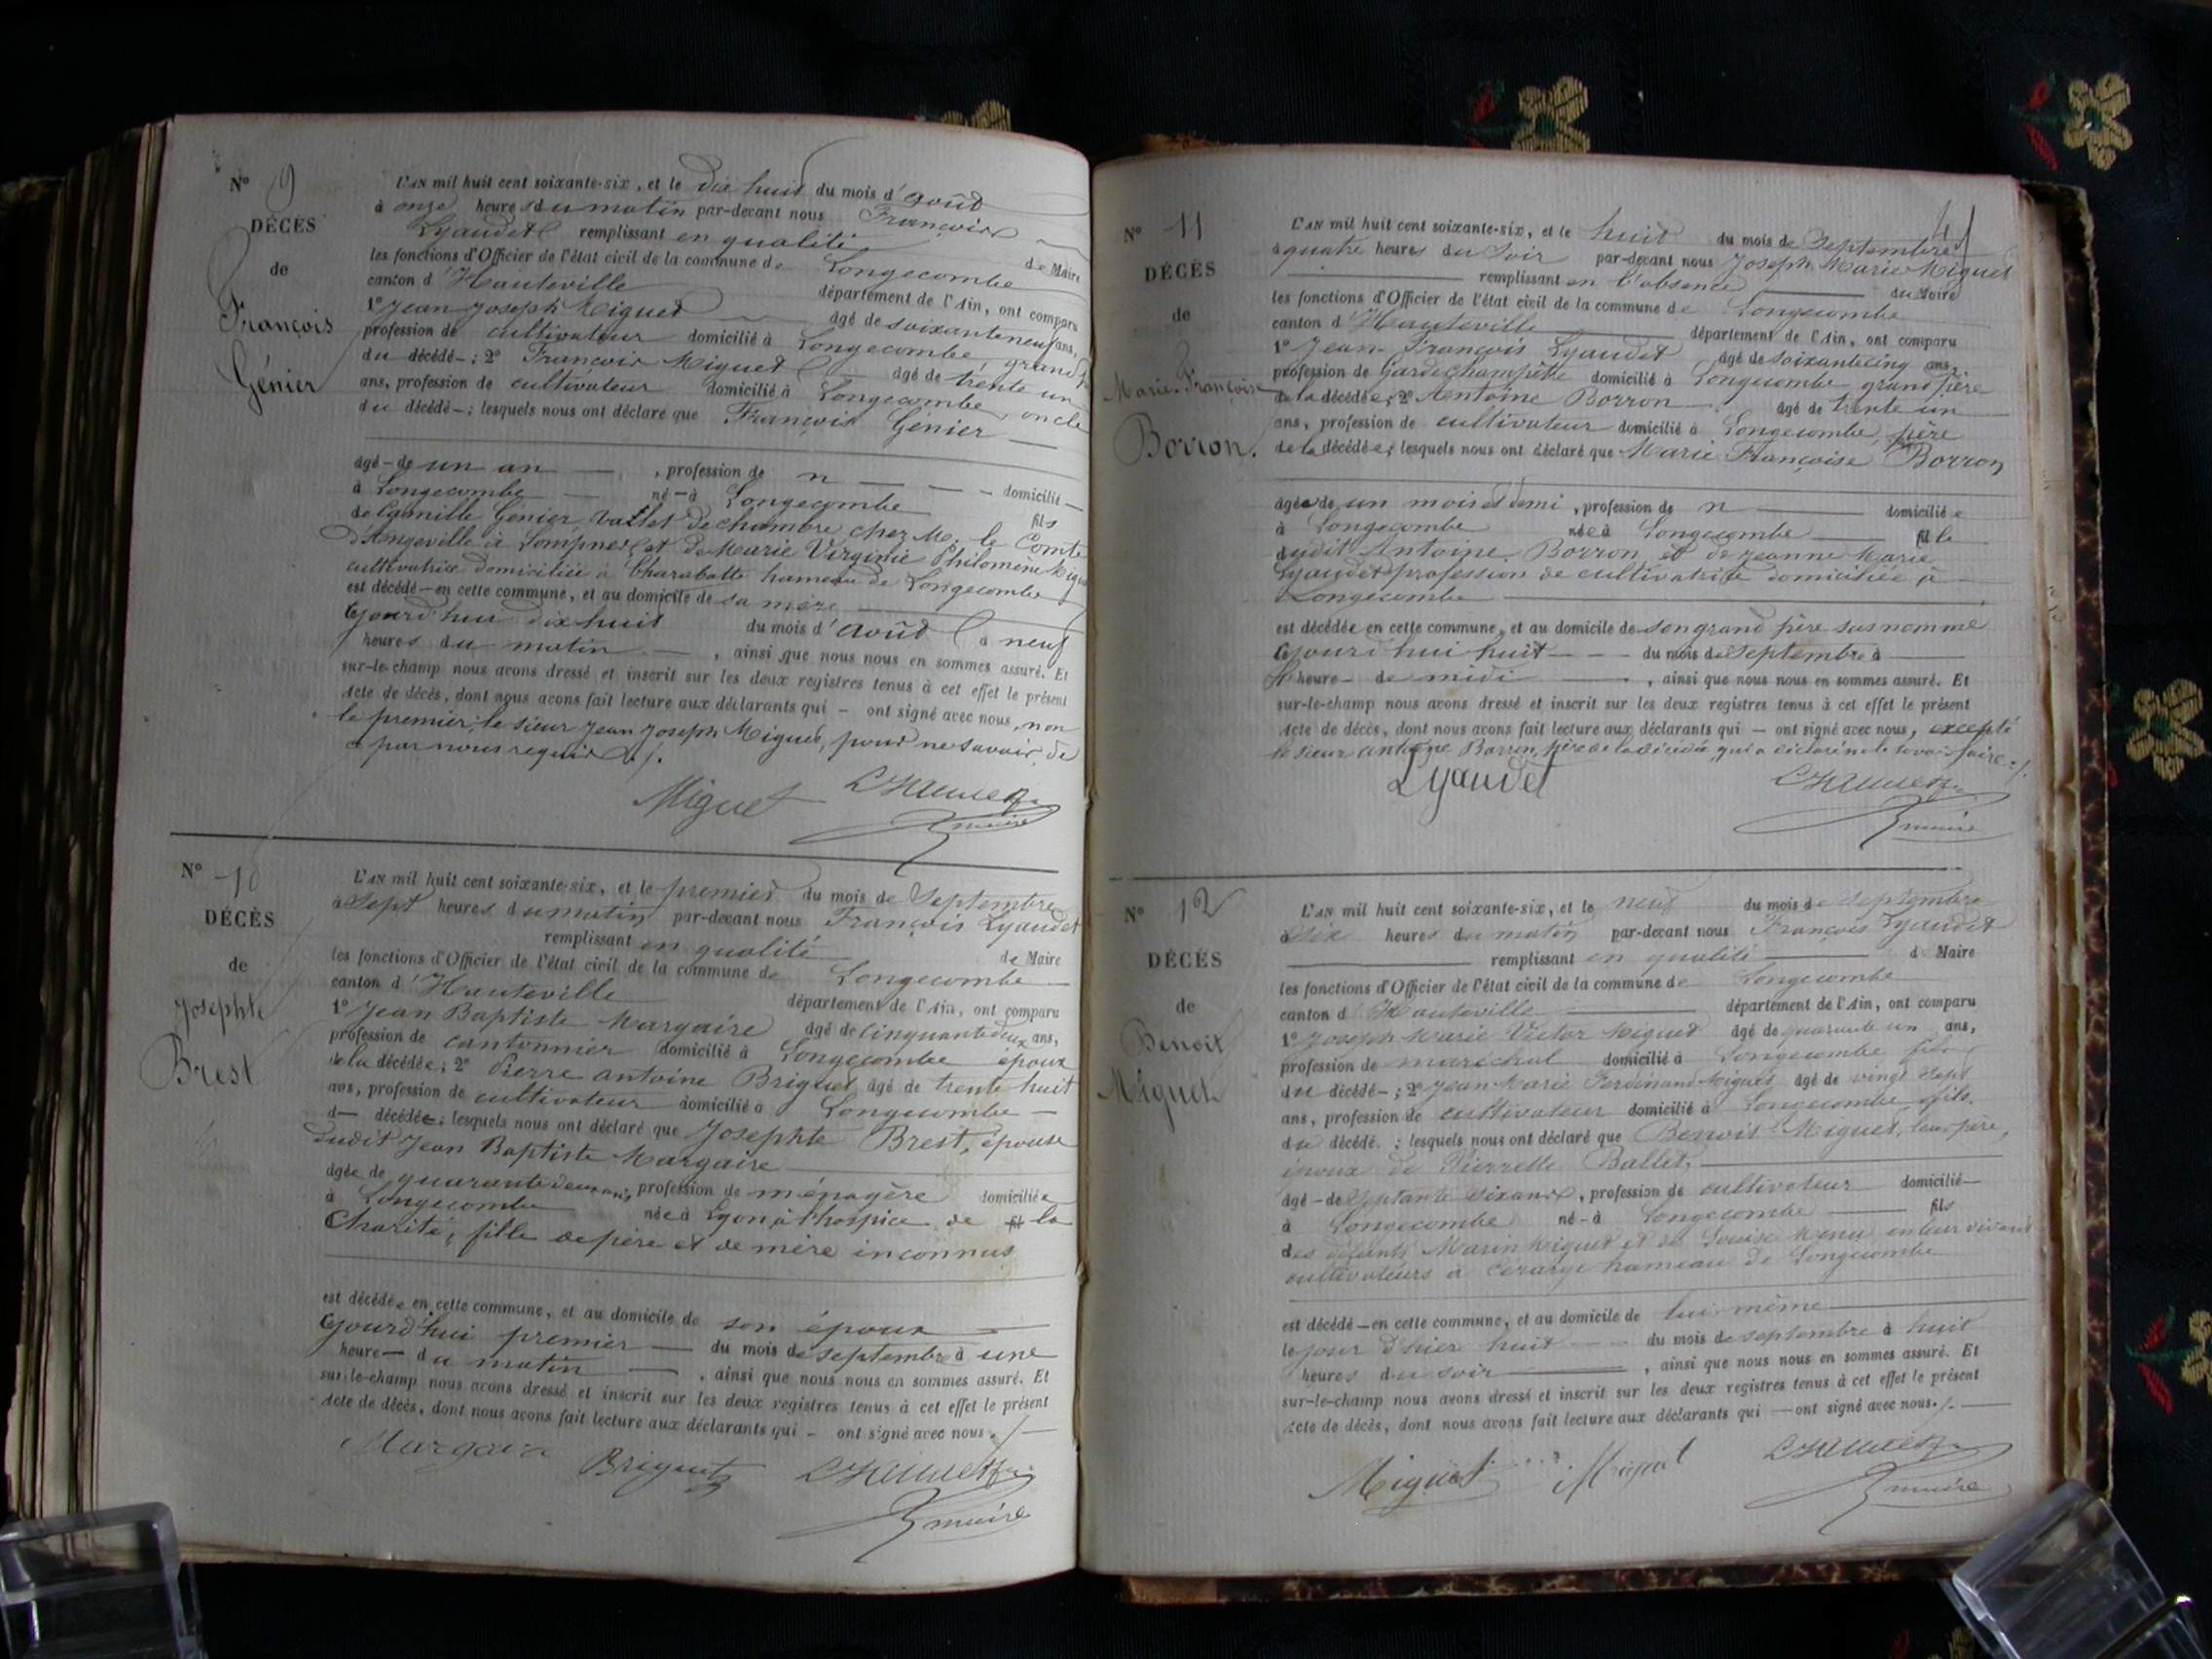 N° 9
DÉCÈS
de
François
Génier
L'AN mil huit cent soixante-six, et le dix huit du mois d'août
à onze heures du matin par-devant nous François
Lyaudet remplissant en qualité de Maire
les fonctions d'Officier de l'état civil de la commune de Longecombe
canton d'Hauteville département de l'Ain, ont comparu
1° Jean Joseph Miguet âgé de soixante neuf ans,
profession de cultivateur domicilié à Longecombe, grand
du décédé ; 2° François Miguet âgé de trente un
ans, profession de cultivateur domicilié à Longecombe, oncle
du décédé ; lesquels nous ont déclaré que François Génier
âgé de un an , profession de n domicilié
à Longecombe né à Longecombe fils
de Camille Génier, vallet de chambre chez Mr. le Comte
d'Angeville à Lompnes, et de Marie Virginie Philomène Migu
cultivatrice domiciliée à Charabotte hameau de Longecombe
est décédé en cette commune, et au domicile de sa mère
cejourd'hui dix huit du mois d'août à neuf
heures du matin , ainsi que nous nous en sommes assuré. Et
sur-le-champ nous avons dressé et inscrit sur les deux registres tenus à cet effet le présent
Acte de décès, dont nous avons fait lecture aux déclarants qui ont signé avec nous, non
le premier, le sieur Jean Joseph Miguet, pour ne savoir, de
ce par nous requis ./.
Miguet
maire
N° 10
DÉCÈS
de
Josephte
Brest
L'AN mil huit cent soixante-six, et le premier du mois de Septembre
à Sept heures du matin par-devant nous François Lyaudet
remplissant en qualité de Maire
les fonctions d'Officier de l'état civil de la commune de Longecombe
canton d'Hauteville département de l'Ain, ont comparu
1° Jean Baptiste Margaire âgé de cinquante deux ans,
profession de cantonnier domicilié à Longecombe époux
de la décédée ; 2° Pierre Antoine Briguet âgé de trente huit
ans, profession de cultivateur domicilié à Longecombe
d décédée ; lesquels nous ont déclaré que Josephte Brest, épouse
dudit Jean Baptiste Margaire
âgée de quarante deux ans, profession de ménagère domiciliée
à Longecombe née à Lyon à l'hospice de la
Charité, fille de père et de mère inconnus
est décédée en cette commune, et au domicile de son époux
cejourd'hui premier du mois de septembre à une
heure du matin , ainsi que nous nous en sommes assuré. Et
sur-le-champ nous avons dressé et inscrit sur les deux registres tenus à cet effet le présent
Acte de décès, dont nous avons fait lecture aux déclarants qui ont signé avec nous ./.
Margaire Briguet
maire
N° 11
DÉCÈS
de
Marie Françoise
Borron.
L'AN mil huit cent soixante-six, et le huit du mois de Septembre
à quatre heures du soir par-devant nous Joseph Marie Miguet
remplissant en l'absence du Maire
les fonctions d'Officier de l'état civil de la commune de Longecombe
canton d'Hauteville département de l'Ain, ont comparu
1° Jean François Lyaudet âgé de soixante cinq ans,
profession de Garde champêtre domicilié à Longecombe grand père
de la décédée ; 2° Antoine Borron âgé de trente un
ans, profession de cultivateur domicilié à Longecombe, père
de la décédée ; lesquels nous ont déclaré que Marie Françoise Borron
âgée de un mois et demi , profession de n domiciliée
à Longecombe née à Longecombe fille
dudit Antoine Borron et de Jeanne Marie
Lyaudet profession de cultivatrice domiciliée à
Longecombe
est décédée en cette commune, et au domicile de son grand père sus nommé
cejourd'hui huit du mois de Septembre à
l'heure de midi , ainsi que nous nous en sommes assuré. Et
sur-le-champ nous avons dressé et inscrit sur les deux registres tenus à cet effet le présent
Acte de décès, dont nous avons fait lecture aux déclarants qui ont signé avec nous, excepté
le sieur Antoine Borron, père de la décédée, qui a déclaré ne le savoir faire ./.
Lyaudet
maire
N° 12
DÉCÈS
de
Benoit
Miguet
L'AN mil huit cent soixante-six, et le neuf du mois de Septembre
à six heures du matin par-devant nous François Lyaudet
remplissant en qualité de Maire
les fonctions d'Officier de l'état civil de la commune de Longecombe
canton d'Hauteville département de l'Ain, ont comparu
1° Joseph Marie Victor Miguet âgé de quarante un ans,
profession de maréchal domicilié à Longecombe fils
du décédé ; 2° Jean Marie Ferdinand Miguet âgé de vingt sept
ans, profession de cultivateur domicilié à Longecombe fils
du décédé ; lesquels nous ont déclaré que Benoit Miguet, leur père,
époux de Pierrette Ballet,
âgé de septante six ans , profession de cultivateur domicilié
à Longecombe né à Longecombe fils
des défunts Marin Miguet et de Louise en leur vivant
cultivateurs à hameau de Longecombe
est décédé en cette commune, et au domicile de lui-même
le jour d'hier huit du mois de septembre à huit
heures du soir , ainsi que nous nous en sommes assuré. Et
sur-le-champ nous avons dressé et inscrit sur les deux registres tenus à cet effet le présent
Acte de décès, dont nous avons fait lecture aux déclarants qui ont signé avec nous ./.
Miguet Miguet
maire